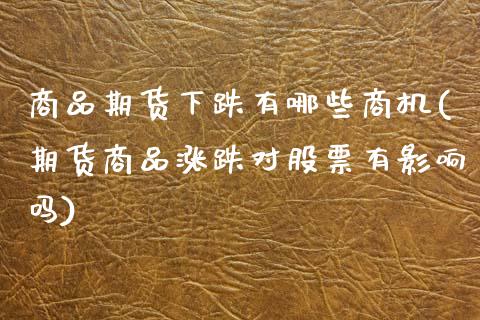 商品期货下跌有哪些商机(
期货商品涨跌对股票有影响
吗)